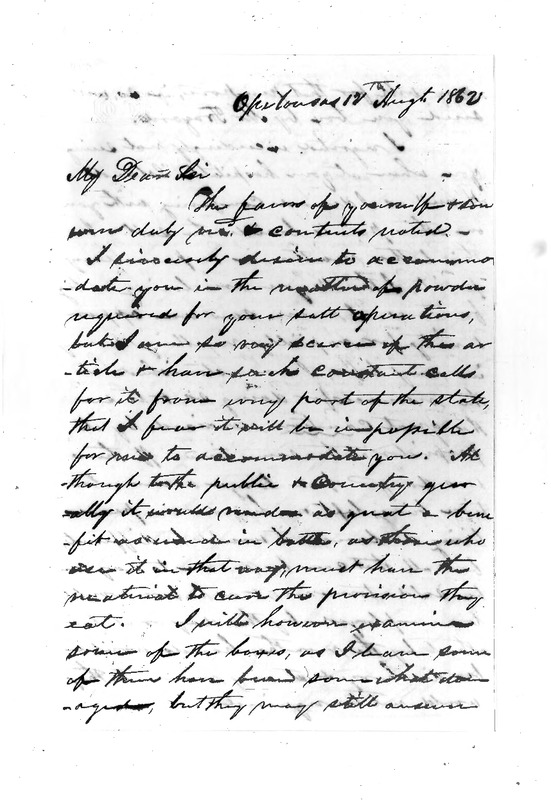 Opelousas 12th Augt 1862
My Dear Sir
The favors of yourself & son
were duly recd. & contents noted -
I sincerely desire to accommo
-date you in the matter of powder
required for your salt operations,
but I am so very scarce of this ar
-ticle & have such constant calls
for it from every part of the state,
that I fear it will be impossible
for me to accommodate you. Al
-though to the public & Country gener
-ally it would render as great a bene
-fit as used in battle, as those who
use it in that way, must have the
material to cure the provision they
eat. I will however examine
some of the boxes, as I learn some
of them have been somewhat dam
-aged, but they may still answer